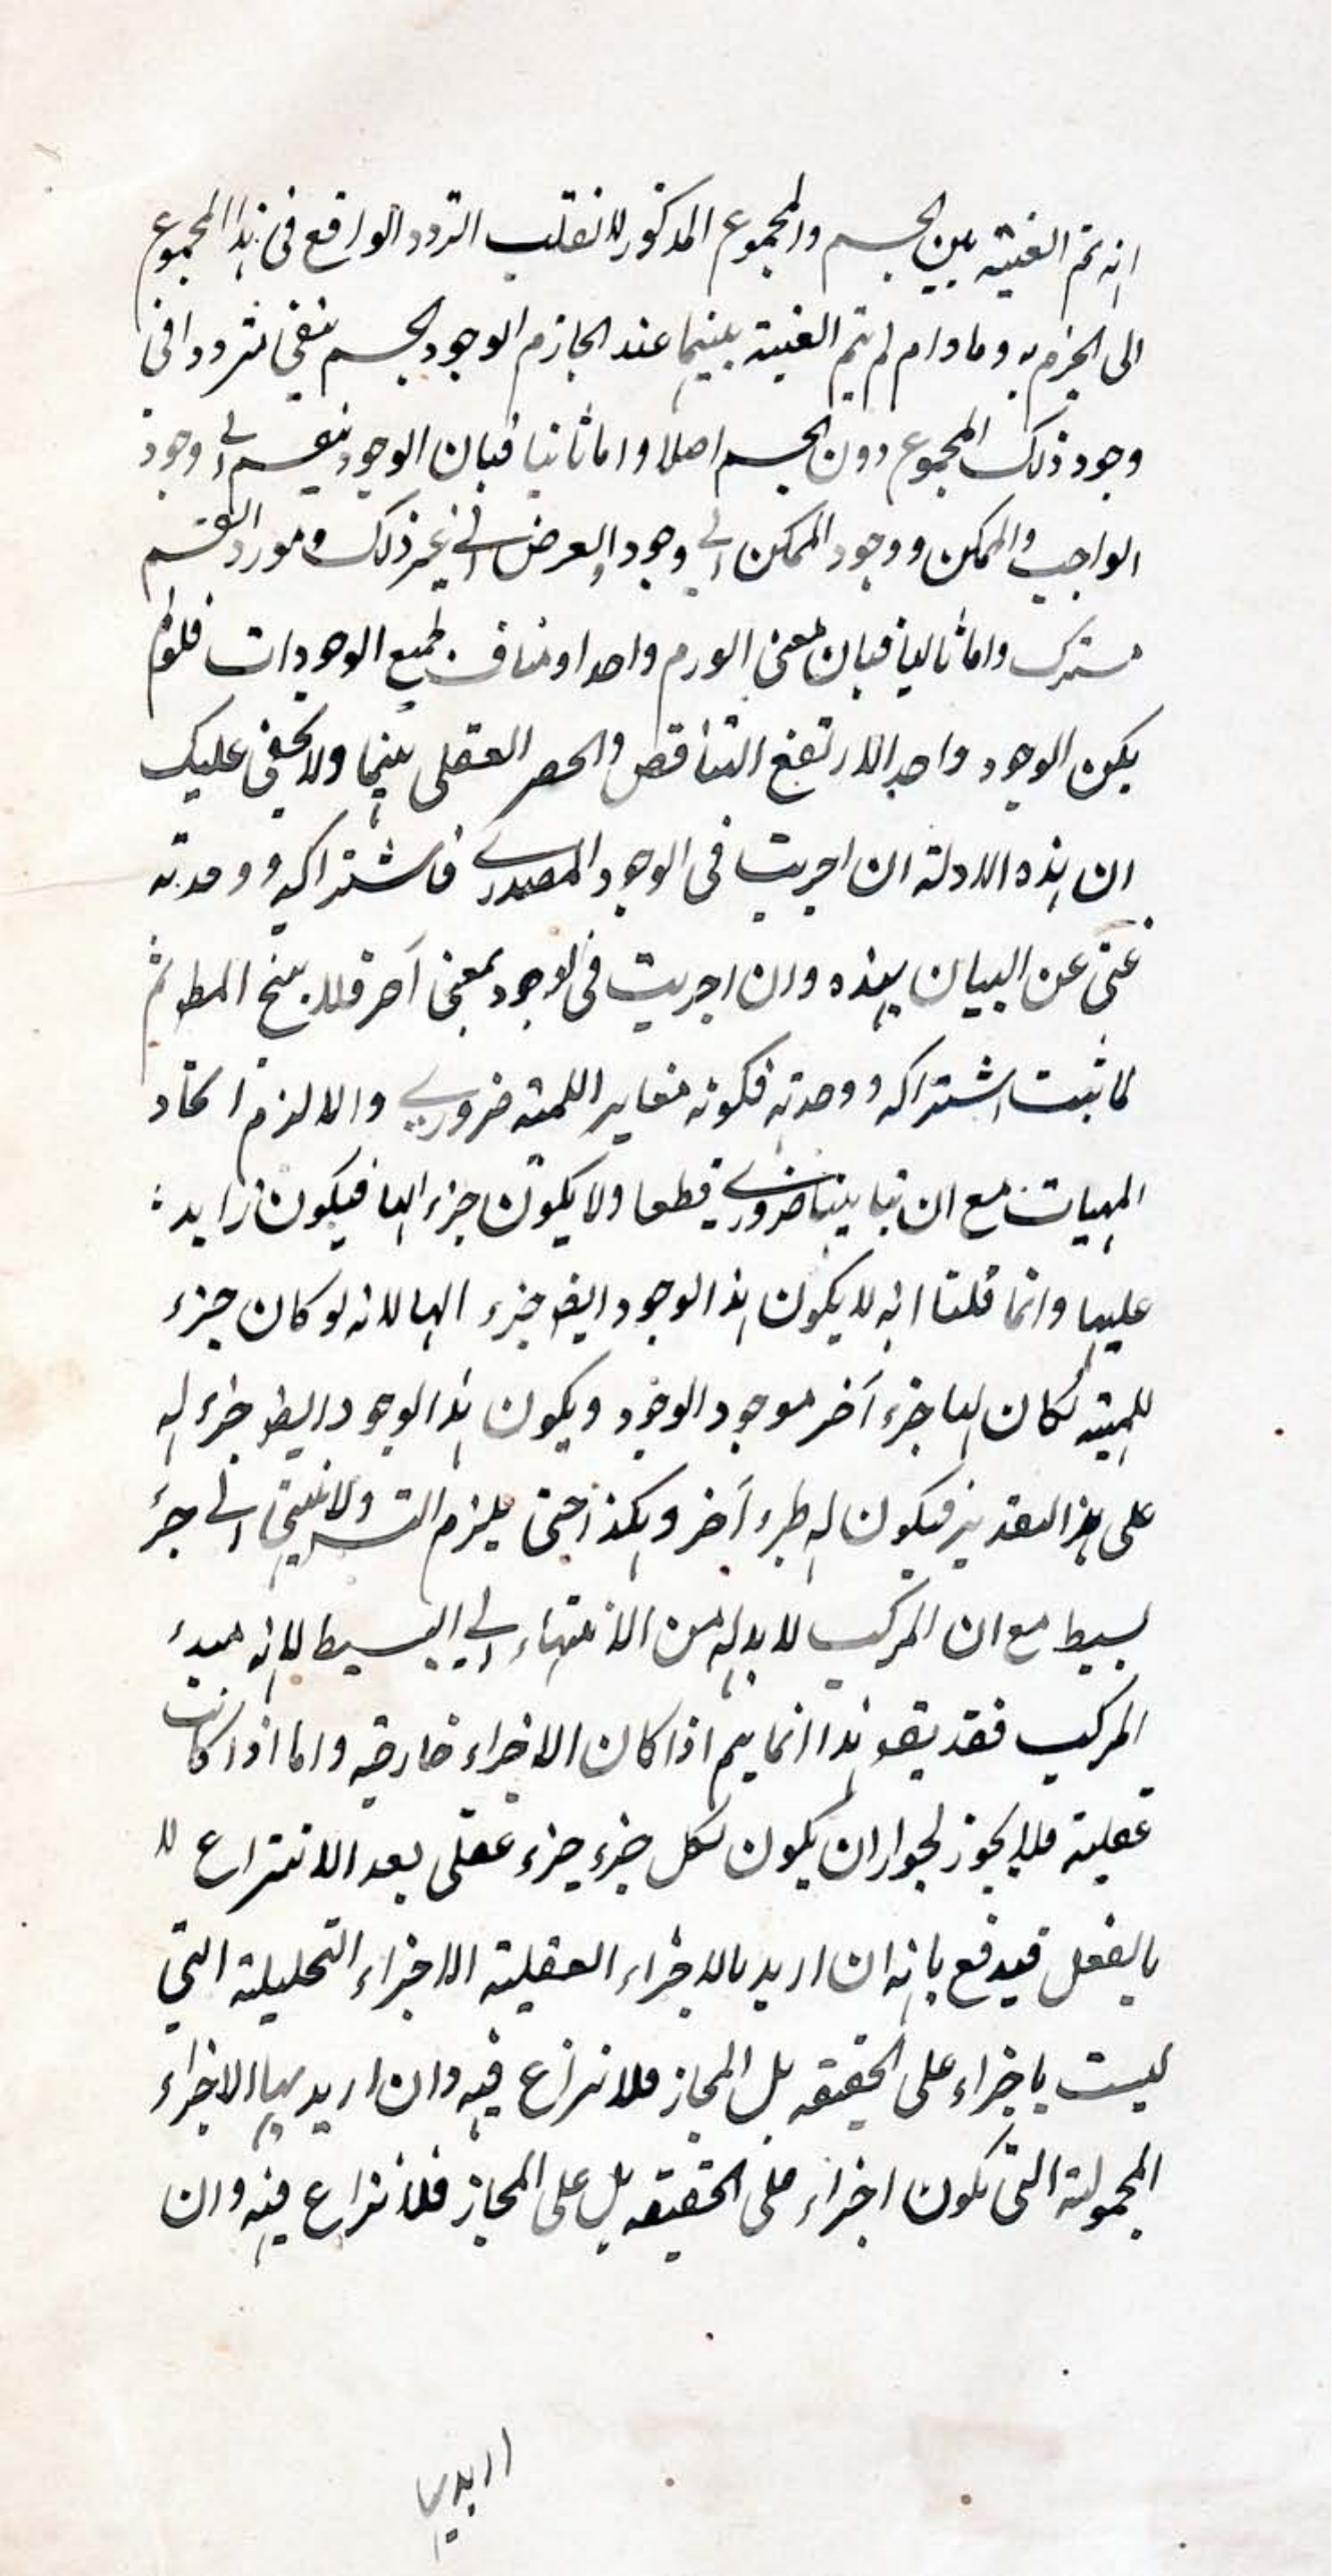 انه تم الغيبته بين الجسم والمجموع المذكور لانقلب التردد الواقع فى هذا المجموع
الى الجزم به ومادام لم يتم الغيبته بينهما عند الجازم الوجود الجسم ينفى تردد افى
وجود ذلك المجموع دون الجسم اصلا واما ثانيا فبان الوجود ينقسم الى وجود
الواجب والممكن ووجود الممكن الى وجود العرض الى غير ذلك ومورد القسم
مشترك واما ثالثا فبان معنى الورم واحد او مناف لجميع الوجودات فلو لم
يكن الوجود واحدا لارتفع التناقض والحصر العقلى بينهما ولا يخفى عليك
ان هذه الادلة ان اجريت فى الوجود المصدرى فاشتراكه ووحدته
غنى عن البيان بهذه وان اجريت فى الوجود بمعنى آخر فلا ينتج المط ثم
لما ثبت اشتراكه ووحدته فكونه مغايرا للمهية ضرورى والا لزم اتحاد
المهيات مع ان تباينها ضرورى قطعا ولا يكون جزء الها فيكون زايد
عليها وانما قلنا انه لا يكون هذا الوجود ايض جزء الها لانه لو كان جزء
للمهيته لكان لها جزء آخر موجود الوجود ويكون هذا الوجود ايض جزء له
على هذا التقدير فيكون له جزء آخر وهكذا حتى يلزم التس ولا ينتهى الى جزء
بسيط مع ان المركب لا بد له من الانتهاء الى البسيط لانه مبدء
المركب فقد يقو هذا انما يتم اذا كان الاجزاء خارجيه واما اذا كانت
عقلية فلا يجوز لجواز ان يكون لكل جزء جزء عقلى بعد الانتزاع لا
بالفعل فيدفع بانه ان اريد بالاجزاء العقلية الاجزاء التحليلية التى
ليست باجزاء على الحقيقه بل المجاز فلا نزاع فيه وان اريد بها الاجزاء
المحمولة التى تكون اجزاء على الحقيقه بل على المجاز فلا نزاع فيه وان
اريد بها